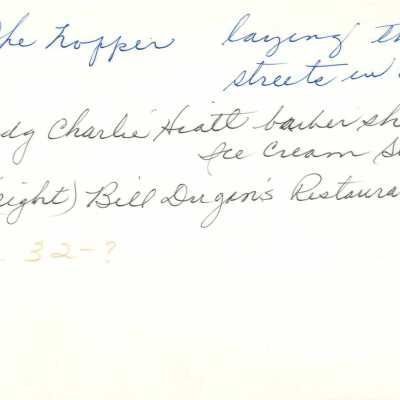 the hopper laying th
streets in
dg Charlie Hiatt barber sh
Ice Cream S
(eight) Bill Dugan's Restaura
32-?